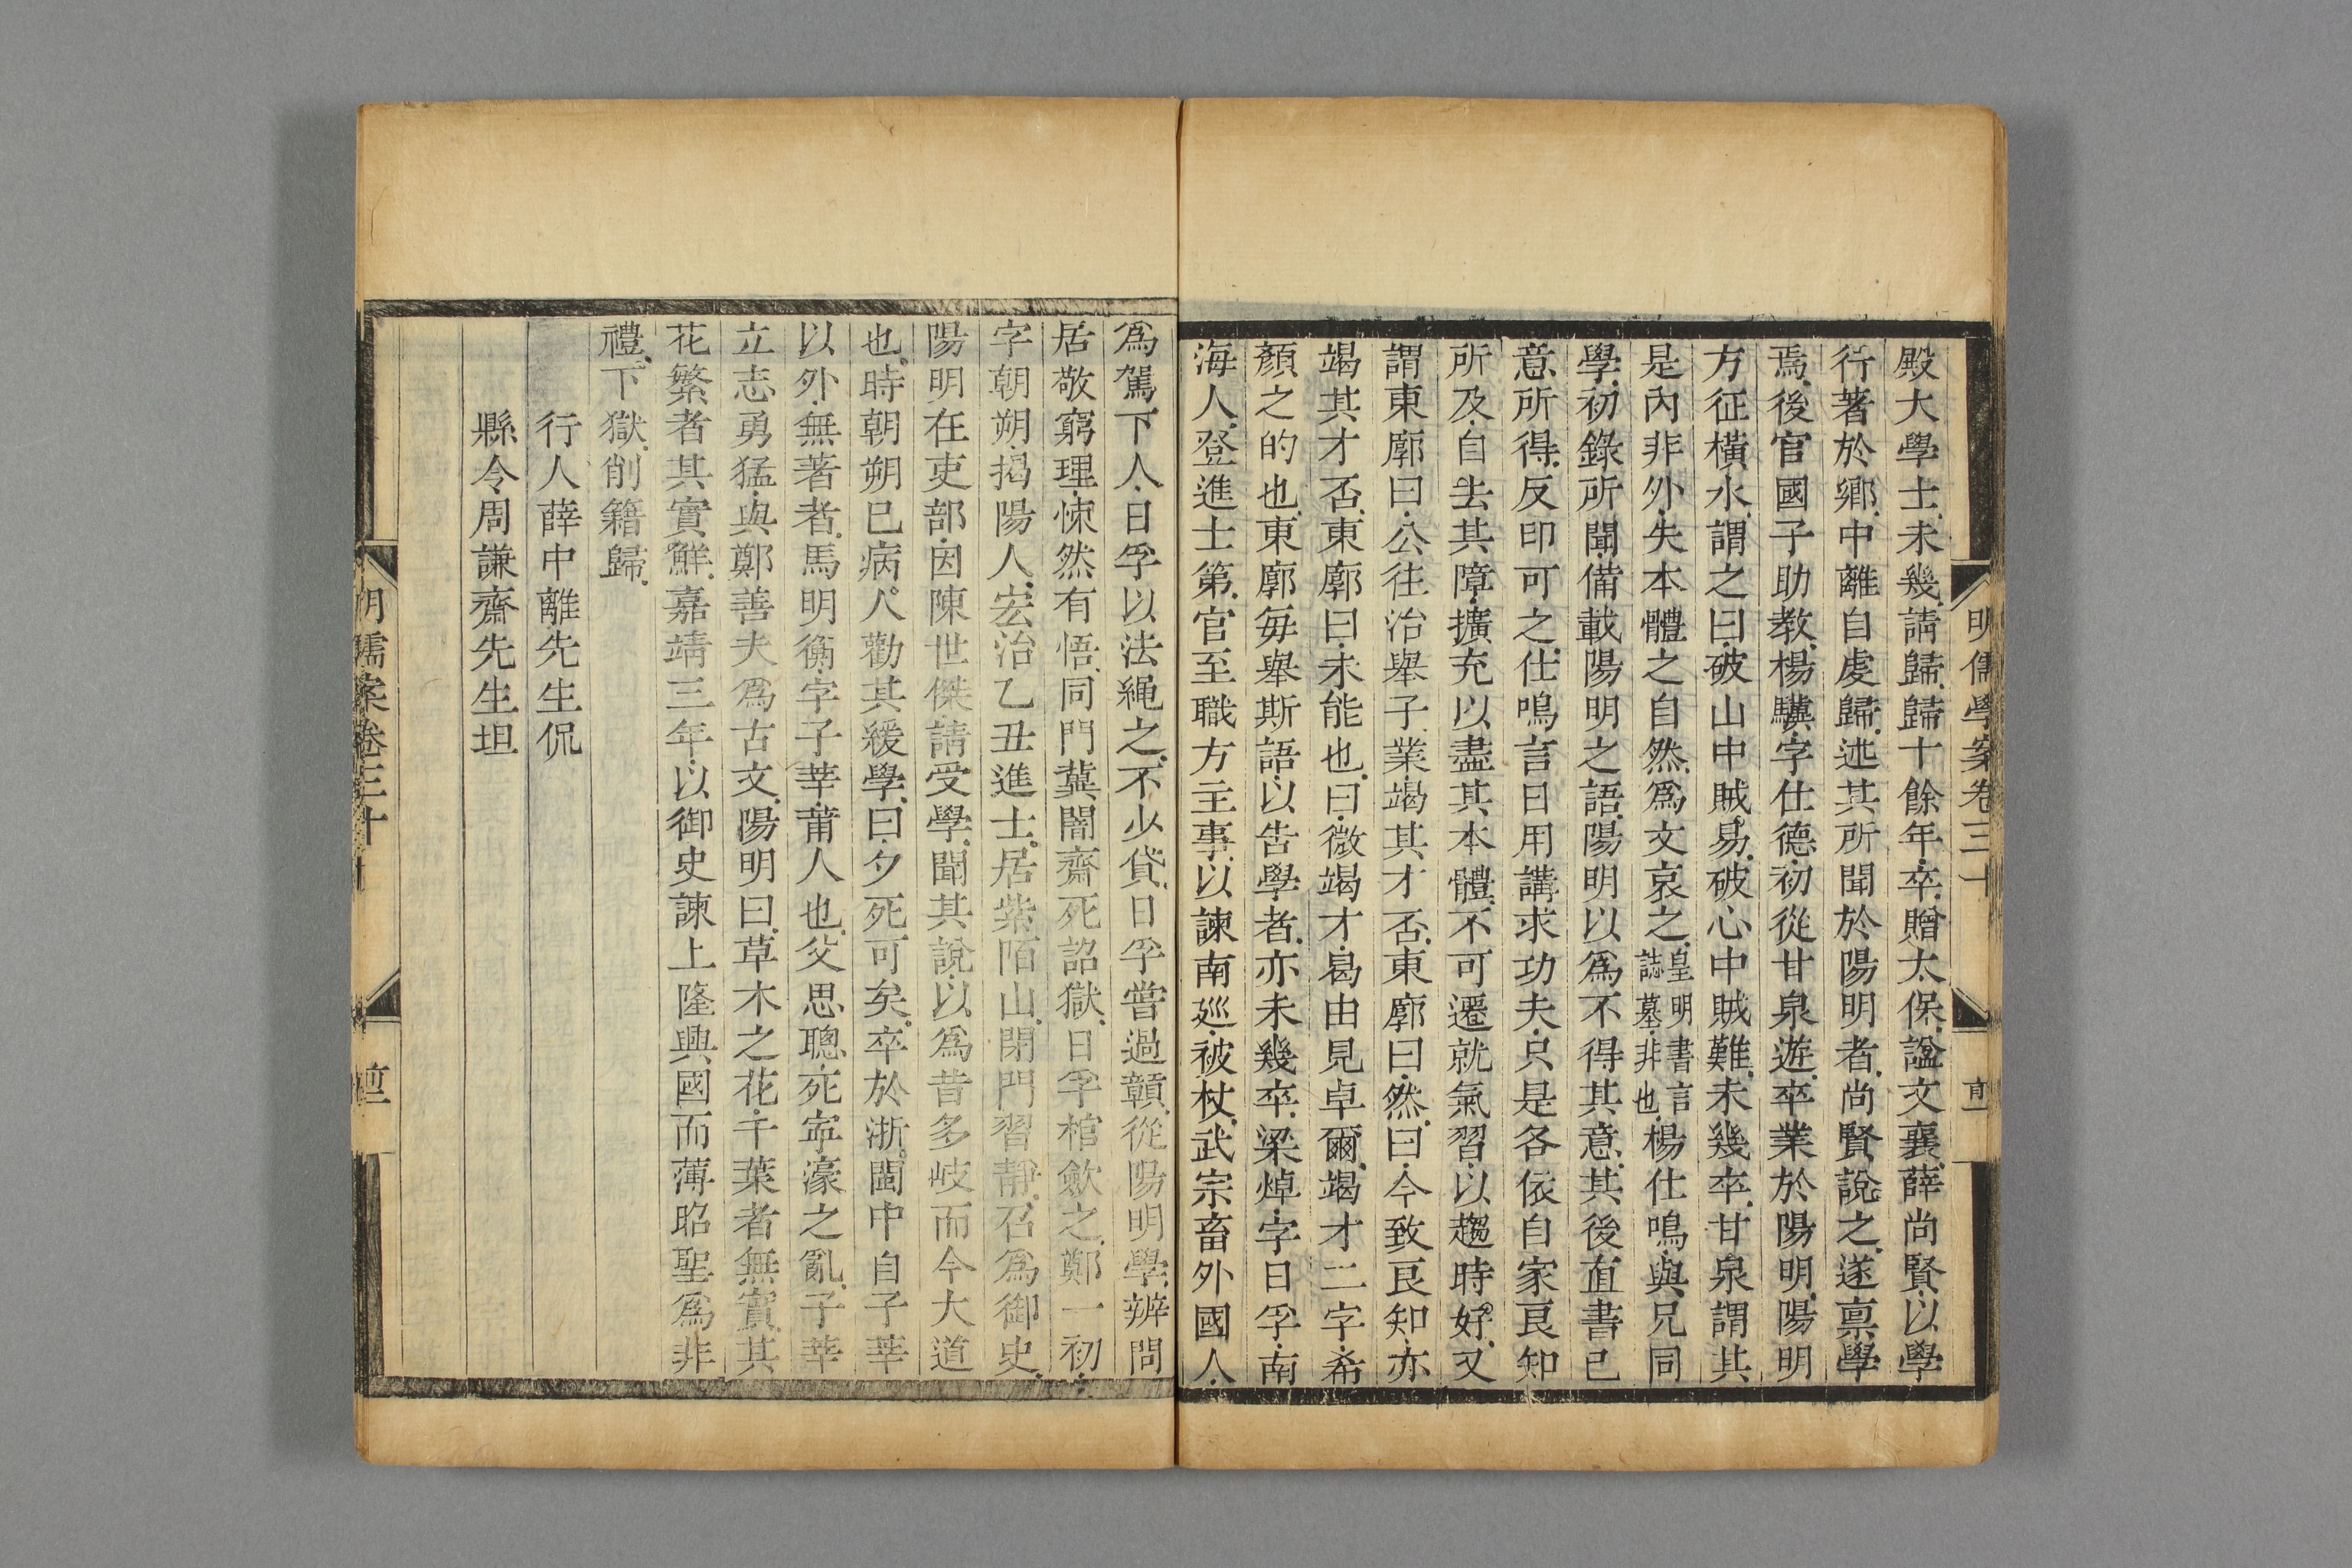 明儒學案卷三十
前一
殿大學士未幾請歸歸十餘年卒贈太保謚文襄薛尚賢以學
行著於鄉中離自虔歸述其所聞於陽明者尚賢說之遂禀學
焉後官國子助教楊驥字仕德初從甘泉遊卒業於陽明陽明
方征橫水謂之曰破山中賊易破心中賊難未幾卒甘泉謂其
是內非外失本體之自然爲文哀之皇明書言誌墓非也楊仕鳴與兄同
學初錄所聞備載陽明之語陽明以爲不得其意其後直書己
意所得反印可之仕鳴言日用講求功夫只是各依自家良知
所及自去其障擴充以盡其本體不可遷就氣習以趨時好又
謂東廓曰公往治舉子業竭其才否東廓曰然曰今致良知亦
竭其才否東廓曰未能也曰微竭才曷由見卓爾竭才二字希
顏之的也東廓每舉斯語以告學者亦未幾卒梁焯字日孚南
海人登進士第官至職方主事以諫南廵被杖武宗畜外國人
爲駕下人日孚以法繩之不少貸日孚嘗過贑從陽明學辨問
居敬窮理悚然有悟同門冀闇齋死詔獄日孚棺歛之鄭一初
字朝朔揭陽人宏治乙丑進士居紫陌山閉門習靜召爲御史
陽明在吏部因陳世傑請受學聞其說以爲昔多岐而今大道
也時朝朔已病人勸其緩學曰夕死可矣卒於浙閩中自子莘
以外無著者馬明衡字子莘莆人也父思聰死寍濠之亂子莘
立志勇猛與鄭善夫爲古文陽明曰草木之花千葉者無實其
花繁者其實鮮嘉靖三年以御史諫上隆興國而薄昭聖爲非
禮下獄削籍歸
行人薛中離先生侃
縣令周謙齋先生坦